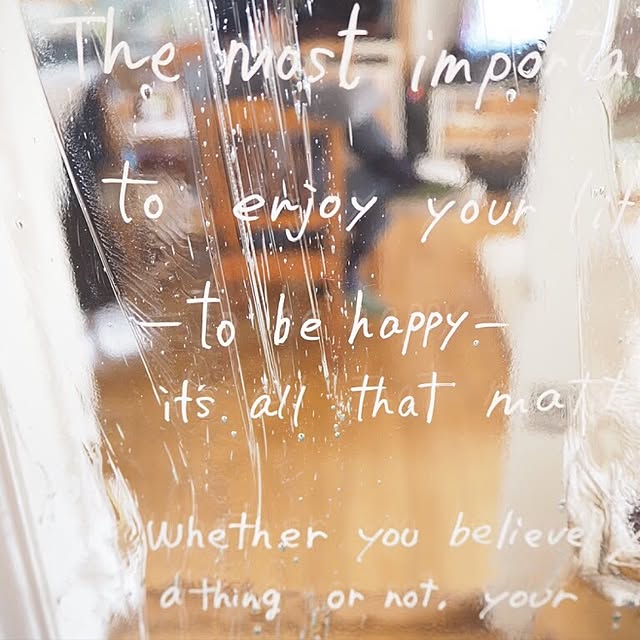 The most importa
to enjoy your li
—to be happy—
it's all that mat
Whether you believe
a thing or not, your